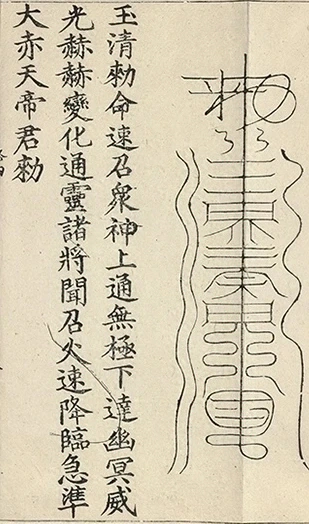 玉清勅命速召衆神上通無極下達幽冥威
光赫赫變化通靈諸將聞召火速降臨急準
大赤天帝君勅